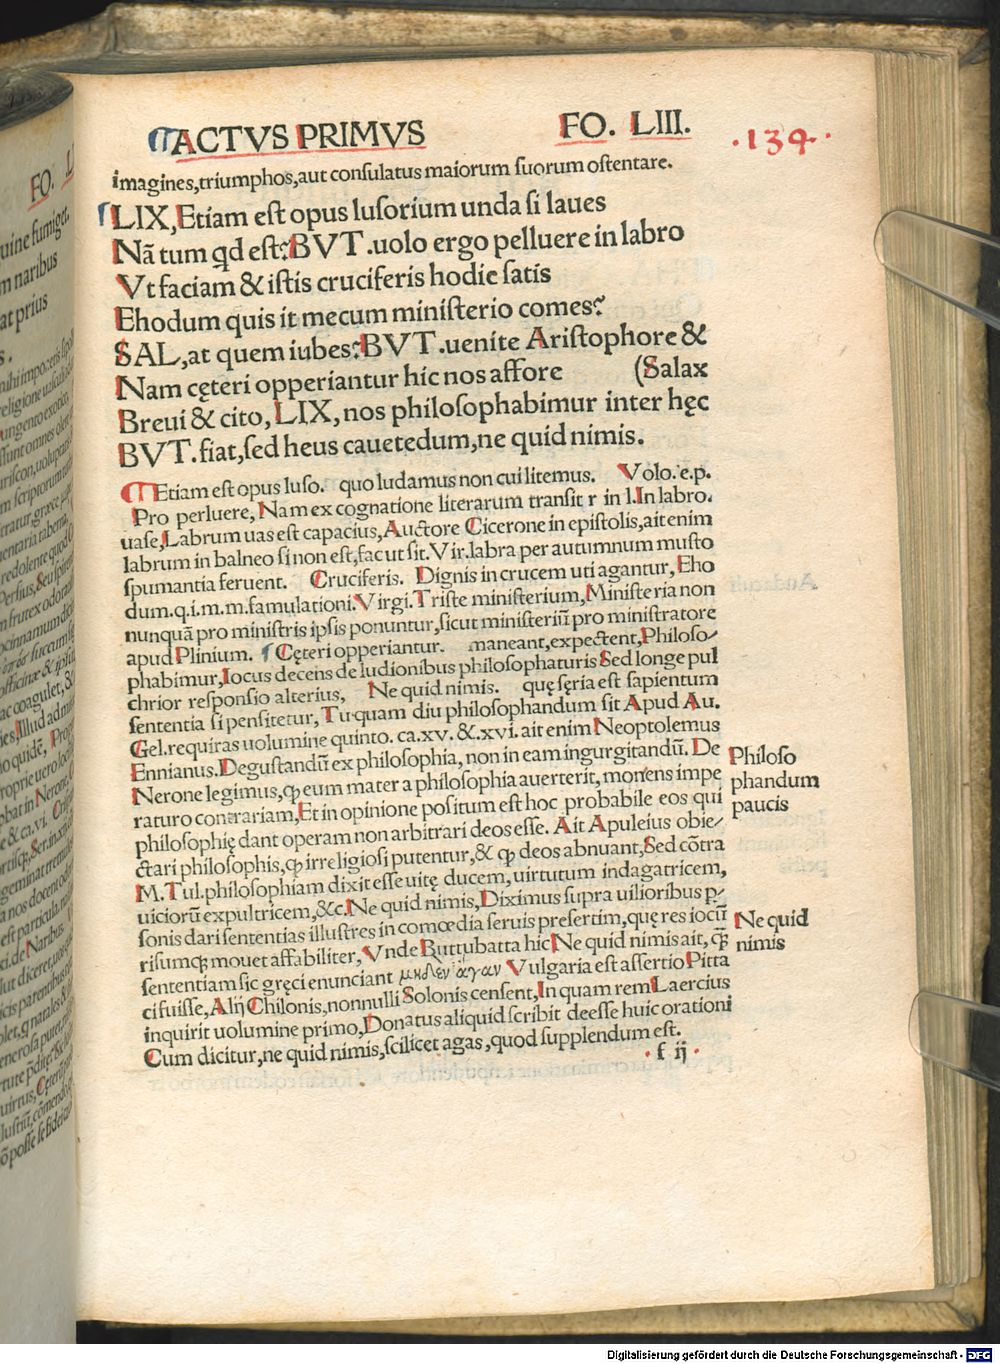 ACTVS PRIMVS FO. LIII. .134.
imagines,triumphos,aut consulatus maiorum suorum ostentare.
LIX,Etiam est opus lusorium unda si laues
Nã tum qd est?BVT.uolo ergo pelluere in labro
Vt faciam & istis cruciferis hodie satis
Ehodum quis it mecum ministerio comes?
SAL,at quem iubes?BVT.uenite Aristophore &
Nam cęteri opperiantur hic nos affore (Salax
Breui & cito,LIX,nos philosophabimur inter hęc
BVT.fiat,sed heus cauetedum,ne quid nimis.
Etiam est opus luso. quo ludamus non cui litemus. Volo.e.p.
Pro perluere,Nam ex cognatione literarum transit r in l.In labro.
uase,Labrum uas est capacius,Auctore Cicerone in epistolis,ait enim
labrum in balneo si non est,fac ut sit.Vir.labra per autumnum musto
spumantia feruent. Cruciferis. Dignis in crucem uti agantur,Eho
dum.q.i.m.m.famulationi.Virgi.Triste ministerium,Ministeria non
nunquã pro ministris ipsis ponuntur,sicut ministeriũ pro ministratore
apud Plinium. Cęteri opperiantur. maneant,expectent,Philoso-
phabimur,Iocus decens de ludionibus philosophaturis Sed longe pul
chrior responsio alterius, Ne quid nimis. quę sęria est sapientum
sententia si pensitetur,Tu quam diu philosophandum sit Apud Au.
Gel.requiras uolumine quinto. ca.xv. &.xvi. ait enim Neoptolemus
Ennianus.Degustandũ ex philosophia,non in eam ingurgitandũ. De
Nerone legimus,ꝙ eum mater a philosophia auerterit,monens impe
raturo contrariam,Et in opinione positum est hoc probabile eos qui
philosophię dant operam non arbitrari deos esse. Ait Apuleius obie-
ctari philosophis,ꝙ irreligiosi putentur,& ꝙ deos abnuant,Sed cõtra
M.Tul.philosophiam dixit esse uitę ducem,uirtutum indagatricem,
uiciorũ expultricem,&c.Ne quid nimis,Diximus supra uilioribus p-
sonis dari sententias illustres in comœdia seruis presertim,quę res iocũ
risumqꝫ mouet affabiliter,Vnde Buttubatta hic Ne quid nimis ait,qꝫ
sententiam sic gręci enunciant μηδεν αγαν Vulgaria est assertio Pitta
ci fuisse,Alij Chilonis,nonnulli Solonis censent,In quam rem Laercius
inquirit uolumine primo,Donatus aliquid scribit deesse huic orationi
Cum dicitur,ne quid nimis,scilicet agas,quod supplendum est.
.f ij.
Philoso
phandum
paucis
Ne quid
nimis
Digitalisierung gefördert durch die Deutsche Forschungsgemeinschaft - DFG